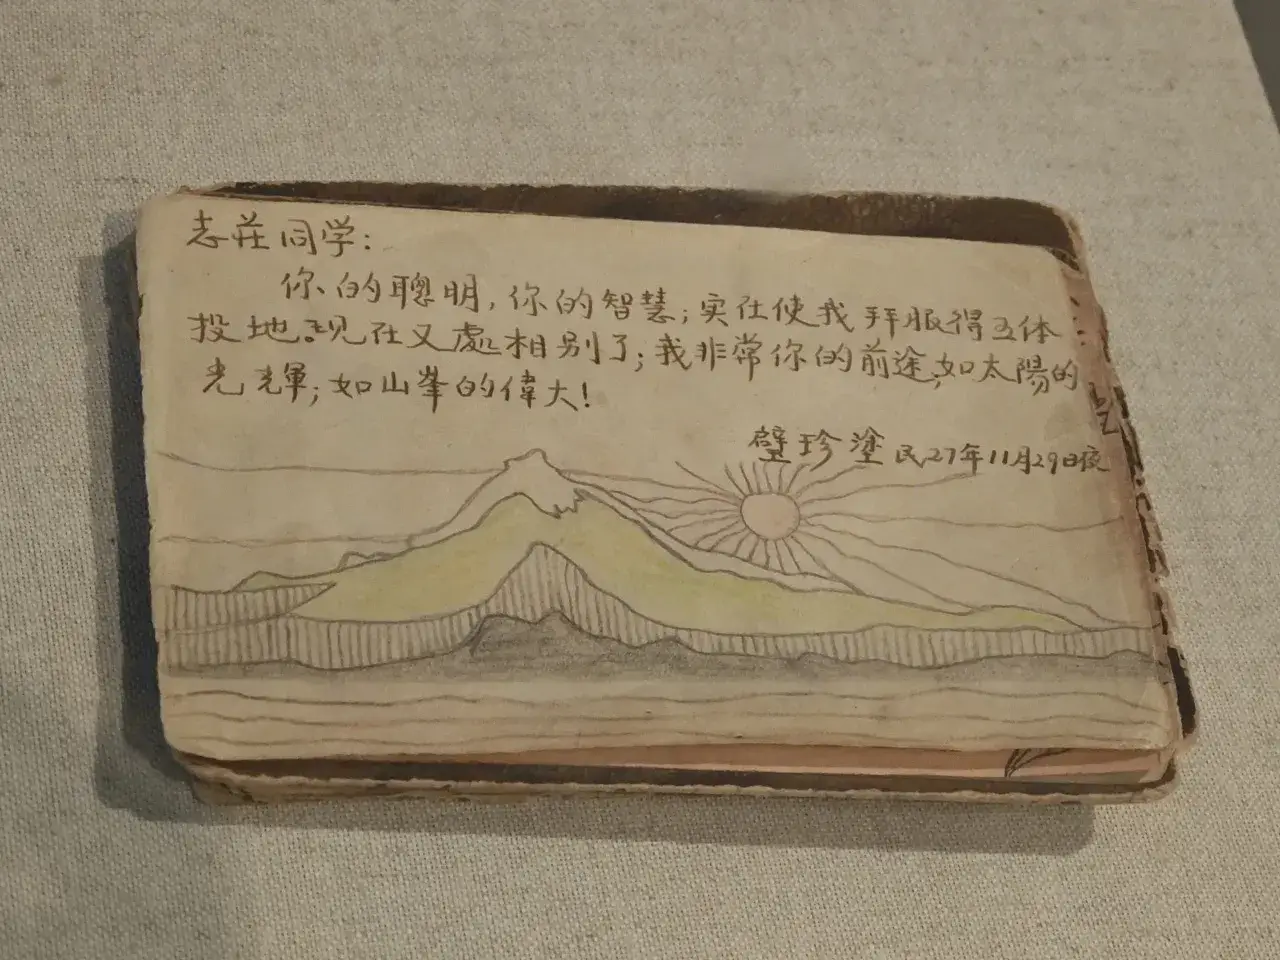 志莊同学：
你的聰明，你的智慧；实在使我拜服得五体
投地。现在又處相别了；我非常你的前途，如太陽的
光輝；如山峯的偉大！
璧珍塗 民27年11月29日夜